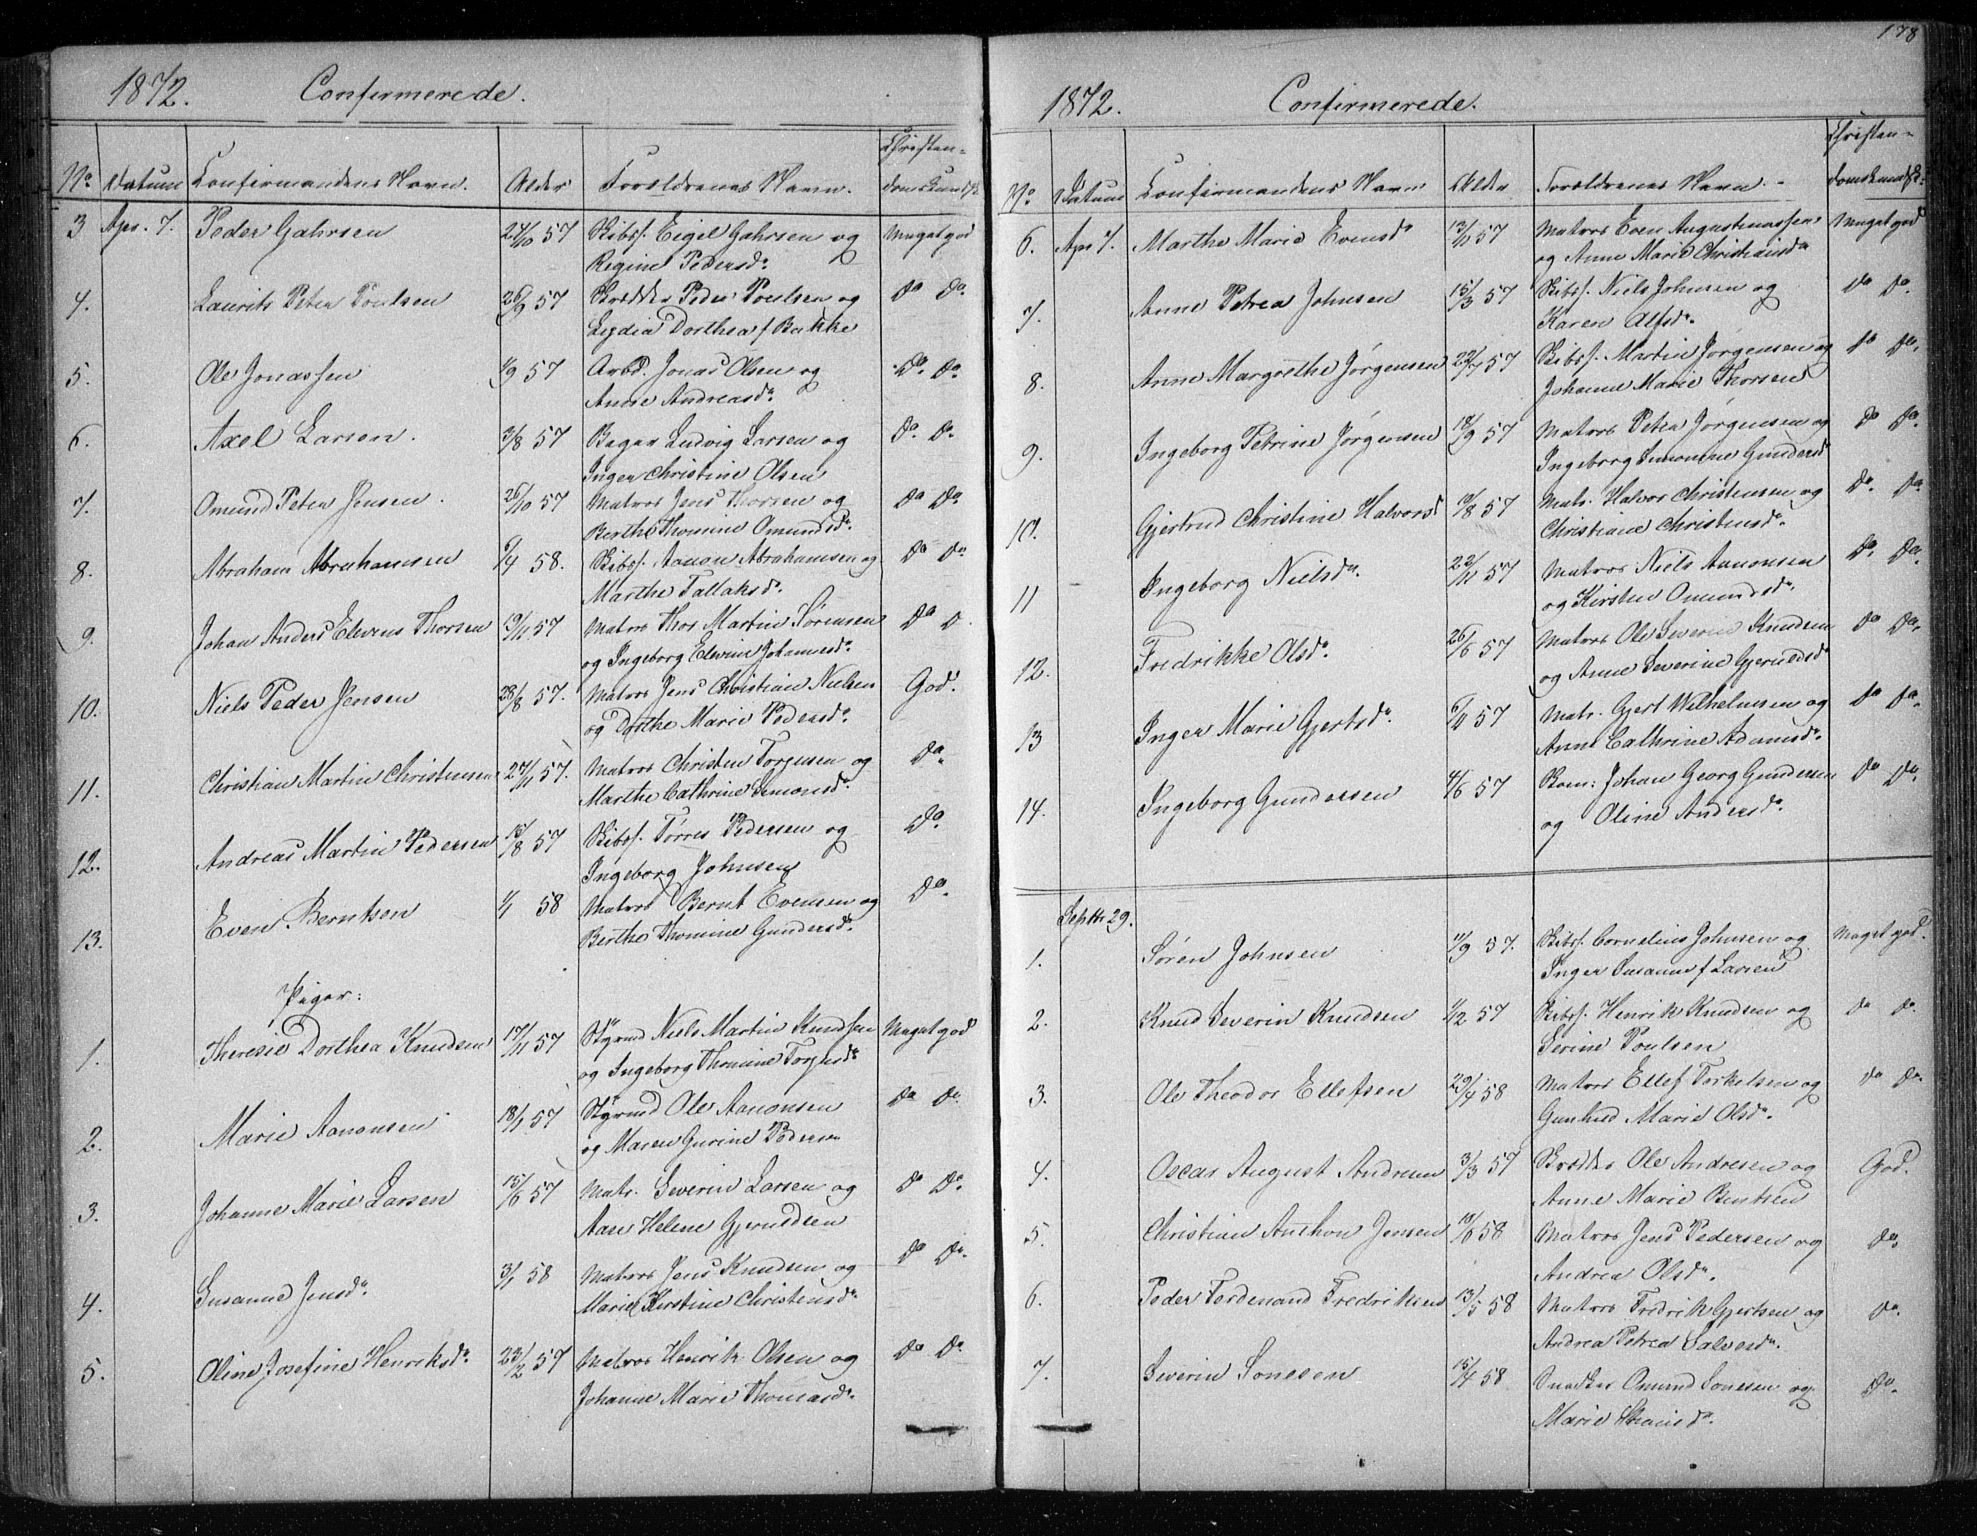 1872. Confirmerede.
No Datum Confirmandens Navn. Alder Forældrenes Navn. Christen-
domskundsk.
3 Apr. 7. Peder Gahrsen 24/10 57 Skibsf. Eigil Gahrsen og Meget god
Regine Pedersd.
4. Laurits Peter Poulsen 26/9 57 Skrædder Peder Poulsen og Do Do.
Lydia Dorthea f Bakke
5. Ole Jonassen 1/9 57 Arbd. Jonas Olsen og Do. Do.
Anne Andreasd.
6. Axel Larsen. 3/8 57 Bager Ludvig Larsen og Do. Do.
Inger Christine Olsen
7. Omund Peter Jensen. 26/10 57 Matros Jens Thorsen og Do Do.
Berthe Thomine Omundsd.
8. Abraham Abrahamsen 6/4 58. Skibsf. Aanon Abrahamsen og Do Do
Marthe Tallaksd.
9. Johan Anders Elevens Thorsen 19/11 57 Matros Thor Martin Sørensen Do D.
og Ingeborg Elevine Johannesd.
10. Niels Peder Jensen 28/8 57. Matros Jens Christian Nielsen God.
og Dorthe Marie Pedersd.
11. Christian Martin Christensen 27/11 57. Matros Christen Torjusen og Do.
Marthe Cathrine Simonsd.
12. Andreas Martin Pedersen 15/8 57 Skibsf. Tørres Pedersen og Do.
Ingeborg Johnsen
13. Even Berntson 1/1 58 Matros Bernt Evensen og Do.
Berthe Thomine Gundersd.
Piger:
1. Theresie Dorthea Knudsen 17/11 57 Styrmd Niels Martin Knudsen Meget god
og Ingeborg Thomine Torjusd.
2. Marie Aanonsen 18/1 57 Styrmd Ole Aanonsen Do Do.
og Maren Gurine Pedersen
3. Johanne Marie Larsen 15/6 57 Matr. Severin Larsen og Do Do.
Aase Helene Gjeruldsen
4. Susanne Jensd. 3/1 58 Matros Jens Knudsen og Do Do.
Marie Kirstine Christensd.
5. Oline Josefine Henriksd. 22/2 57 Matros Henrik Olsen og Do Do.
Johanne Marie Thomasd.
178
1872. Confirmerede.
No Datum Confirmandens Navn Alder Forældrenes Navn. Christen-
domskundsk.
6. Apr 7. Marthe Marie Evensd. 13/11 57 Matros Even Augustinussen Meget god
og Anne Marie Christiansd.
7. Anne Petrea Johnsen 15/3 57 Skibsf. Niels Johnsen og Do Do.
Karen Alfsd.
8. Anne Margrethe Jørgensen 22/7 57 Skibsf. Martin Jørgensen og Do Do.
Johanne Marie Thorsen
9. Ingeborg Petrine Jørgensen 18/9 57 Matros Peter Jørgensen og Do Do.
Ingeborg Simonine Gundersd
10. Gjertrud Christine Halvorsd 19/8 57 Matr. Halvor Christensen og Do. Do.
Christiane Christensd.
11 Ingeborg Nielsd. 22/11 57 Matros Niels Aanonsen Do. Do.
og Kirsten Omundsd.
12. Fredrikke Olsd. 26/6 57 Matros Ole Severin Knudsen Do Do.
og Anne Severine Gjeruldsd.
13 Inger Marie Gjertsd. 6/11 57 Matr. Gjert Wilhelmsen og Do Do.
Anne Cathrine Adamsd.
14. Ingeborg Gundersen 4/6 57 Bom: Johan Georg Gundersen Do Do.
og Oline Andersd.
Septbr 29.
1. Søren Johnsen 11/9 57. Skibsf. Cornelius Johnsen og Meget god.
Inger Susanne f Larsen
2. Knud Severin Knudsen 1/12 57 Skibsf. Henrik Knudsen og Do Do.
Serine Poulsen
3. Ole Theodor Ellefsen 29/4 58 Matros Ellef Torkelsen og Do Do.
Gunhild Marie Olsd.
4. Oscar August Andresen 3/3 57 Skrædder Ole Andresen og God.
Anne Marie Berntsen
5. Christian Anthon Jensen 18/6 58 Matros Jens Pedersen og Do.
Andrea Olsd.
6. Peder Ferdenand Fredriksen 13/5 58 Matros Fredrik Gjertsen og Do.
Andrea Petrea Salvesd.
7. Severin Sonesen 15/4 58 Snedker Omund Sonesen og Do.
Marie